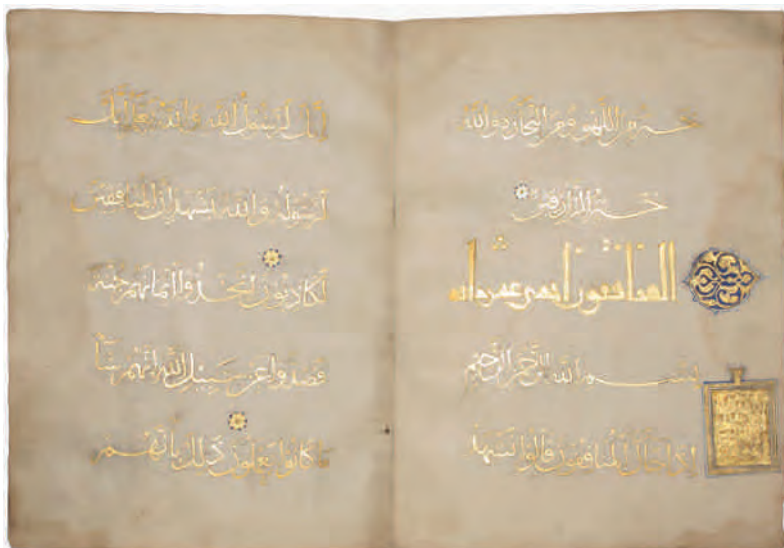 خير من اللهو ومن التجارة والله
خير الرازقين
المنافقون احدى عشرة اية
بسم الله الرحمن الرحيم
اذا جاك المنافقون قالوا نشهد
انك لرسول الله والله يعلم انك
لرسوله والله يشهد ان المنافقين
لكاذبون اتخذوا ايمانهم جنة
فصدوا عن سبيل الله انهم سا
ما كانوا يعملون ذلك بانهم